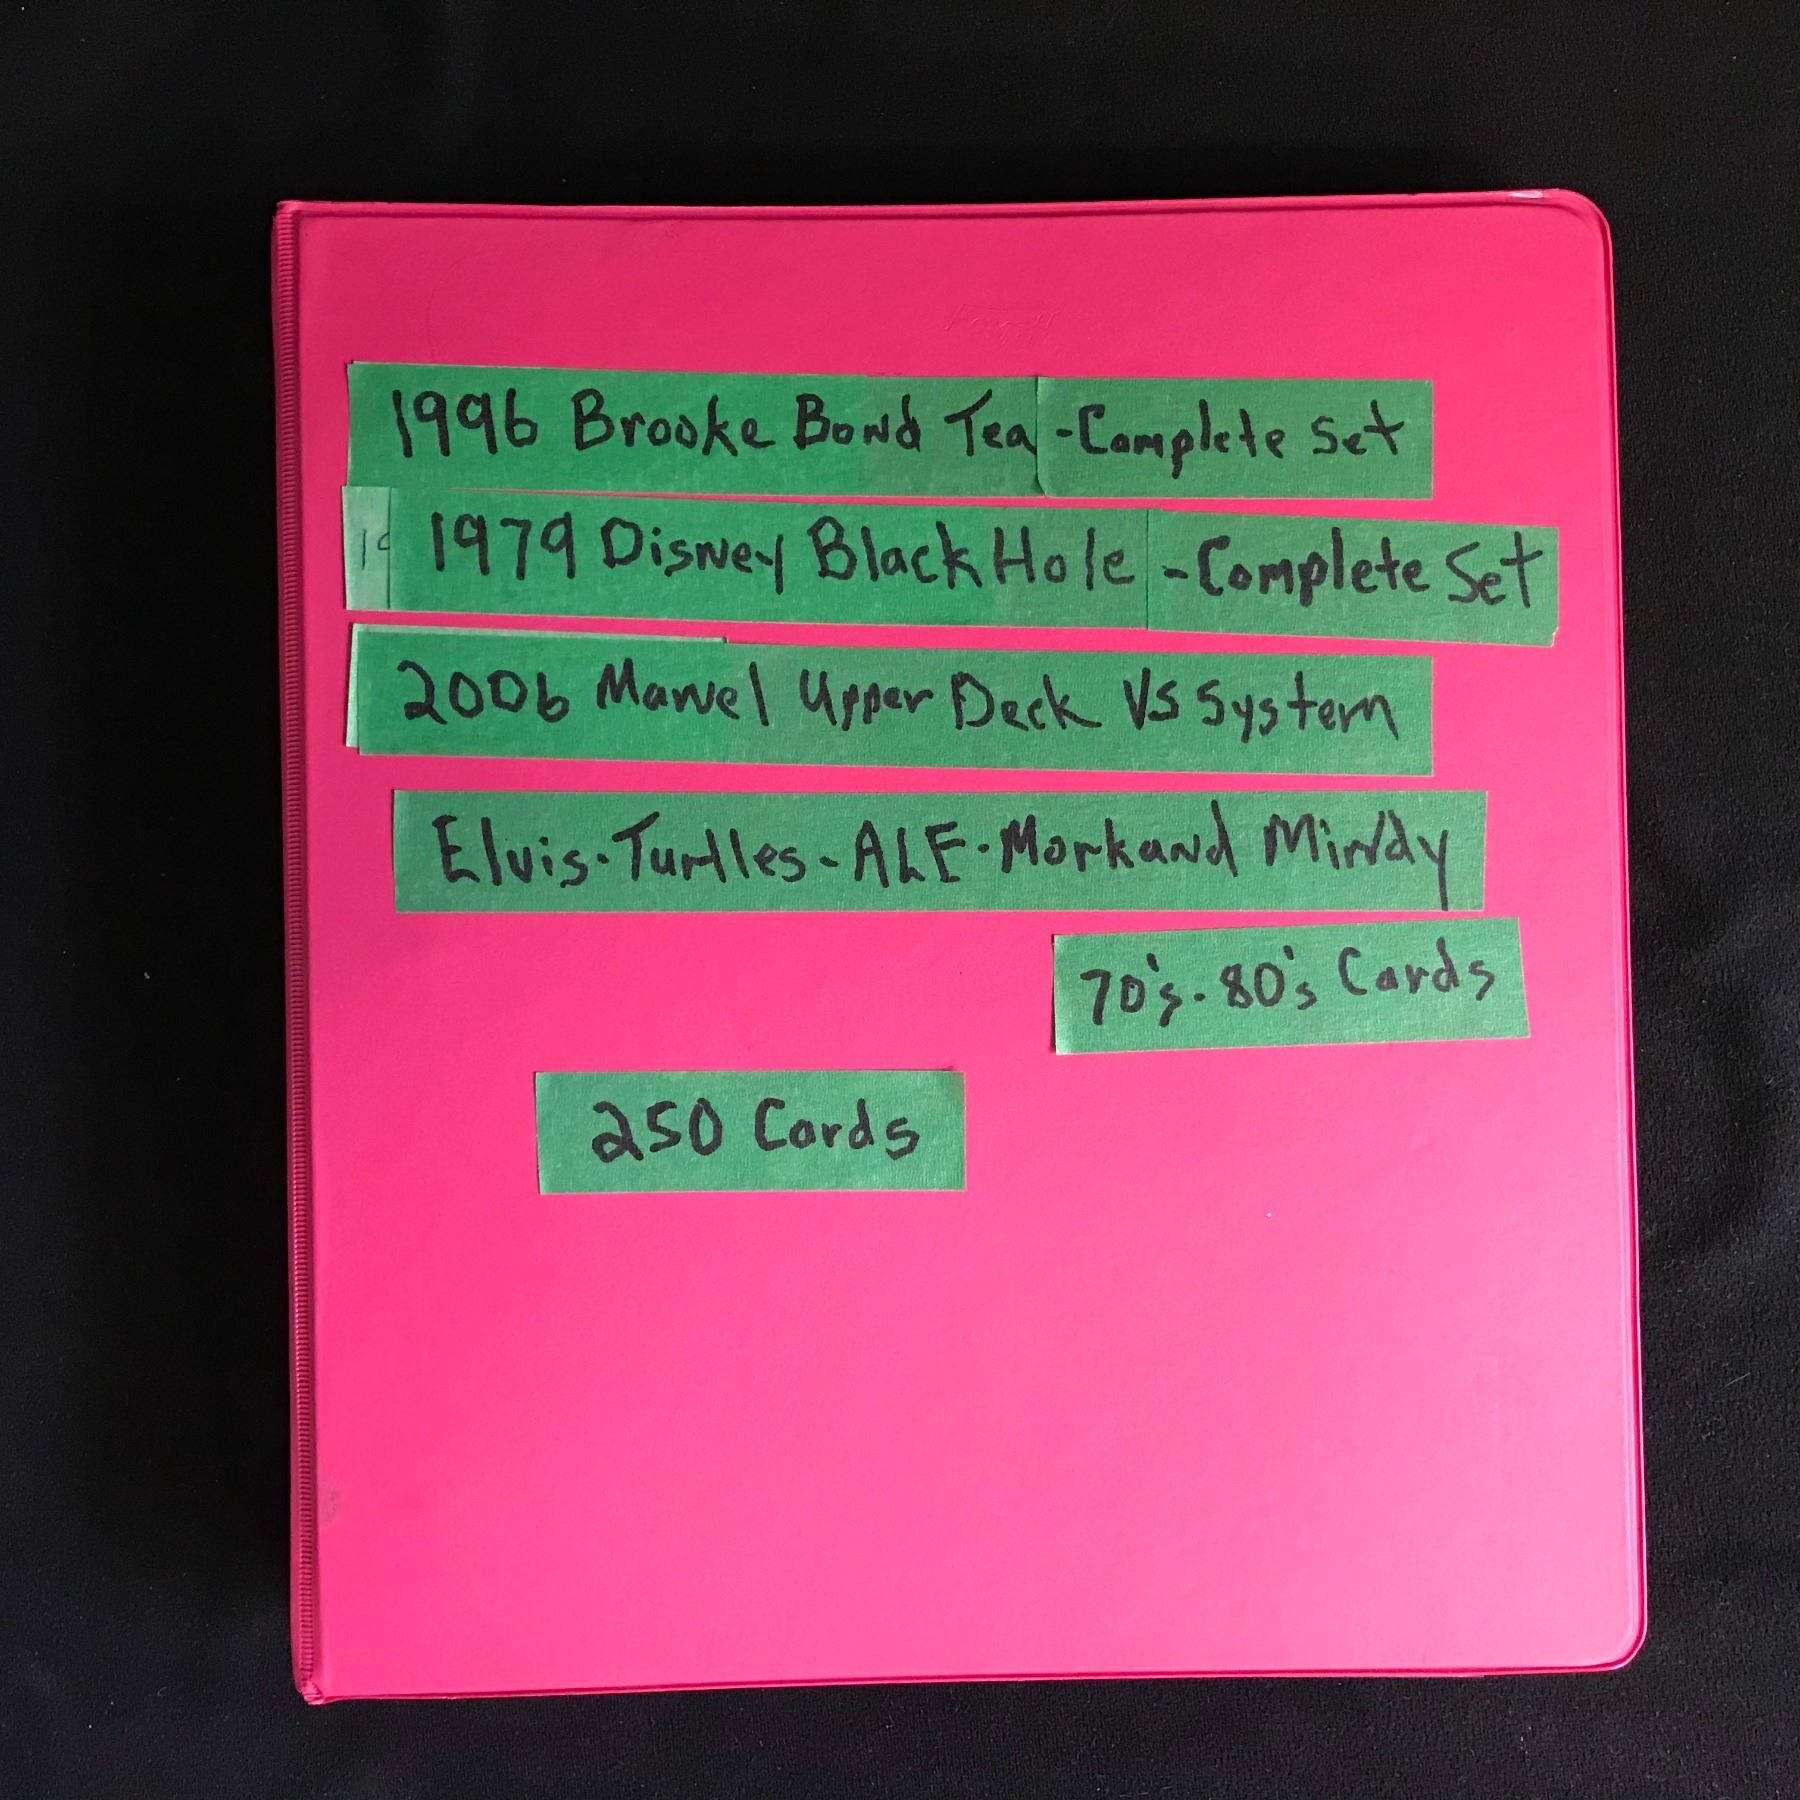 1996 Brooke Bond Tea -Complete Set
19
1979 Disney Black Hole -Complete Set
2006 Marvel Upper Deck VS System
Elvis-Turtles-ALF-Mork and Mindy
70's-80's Cards
250 Cards